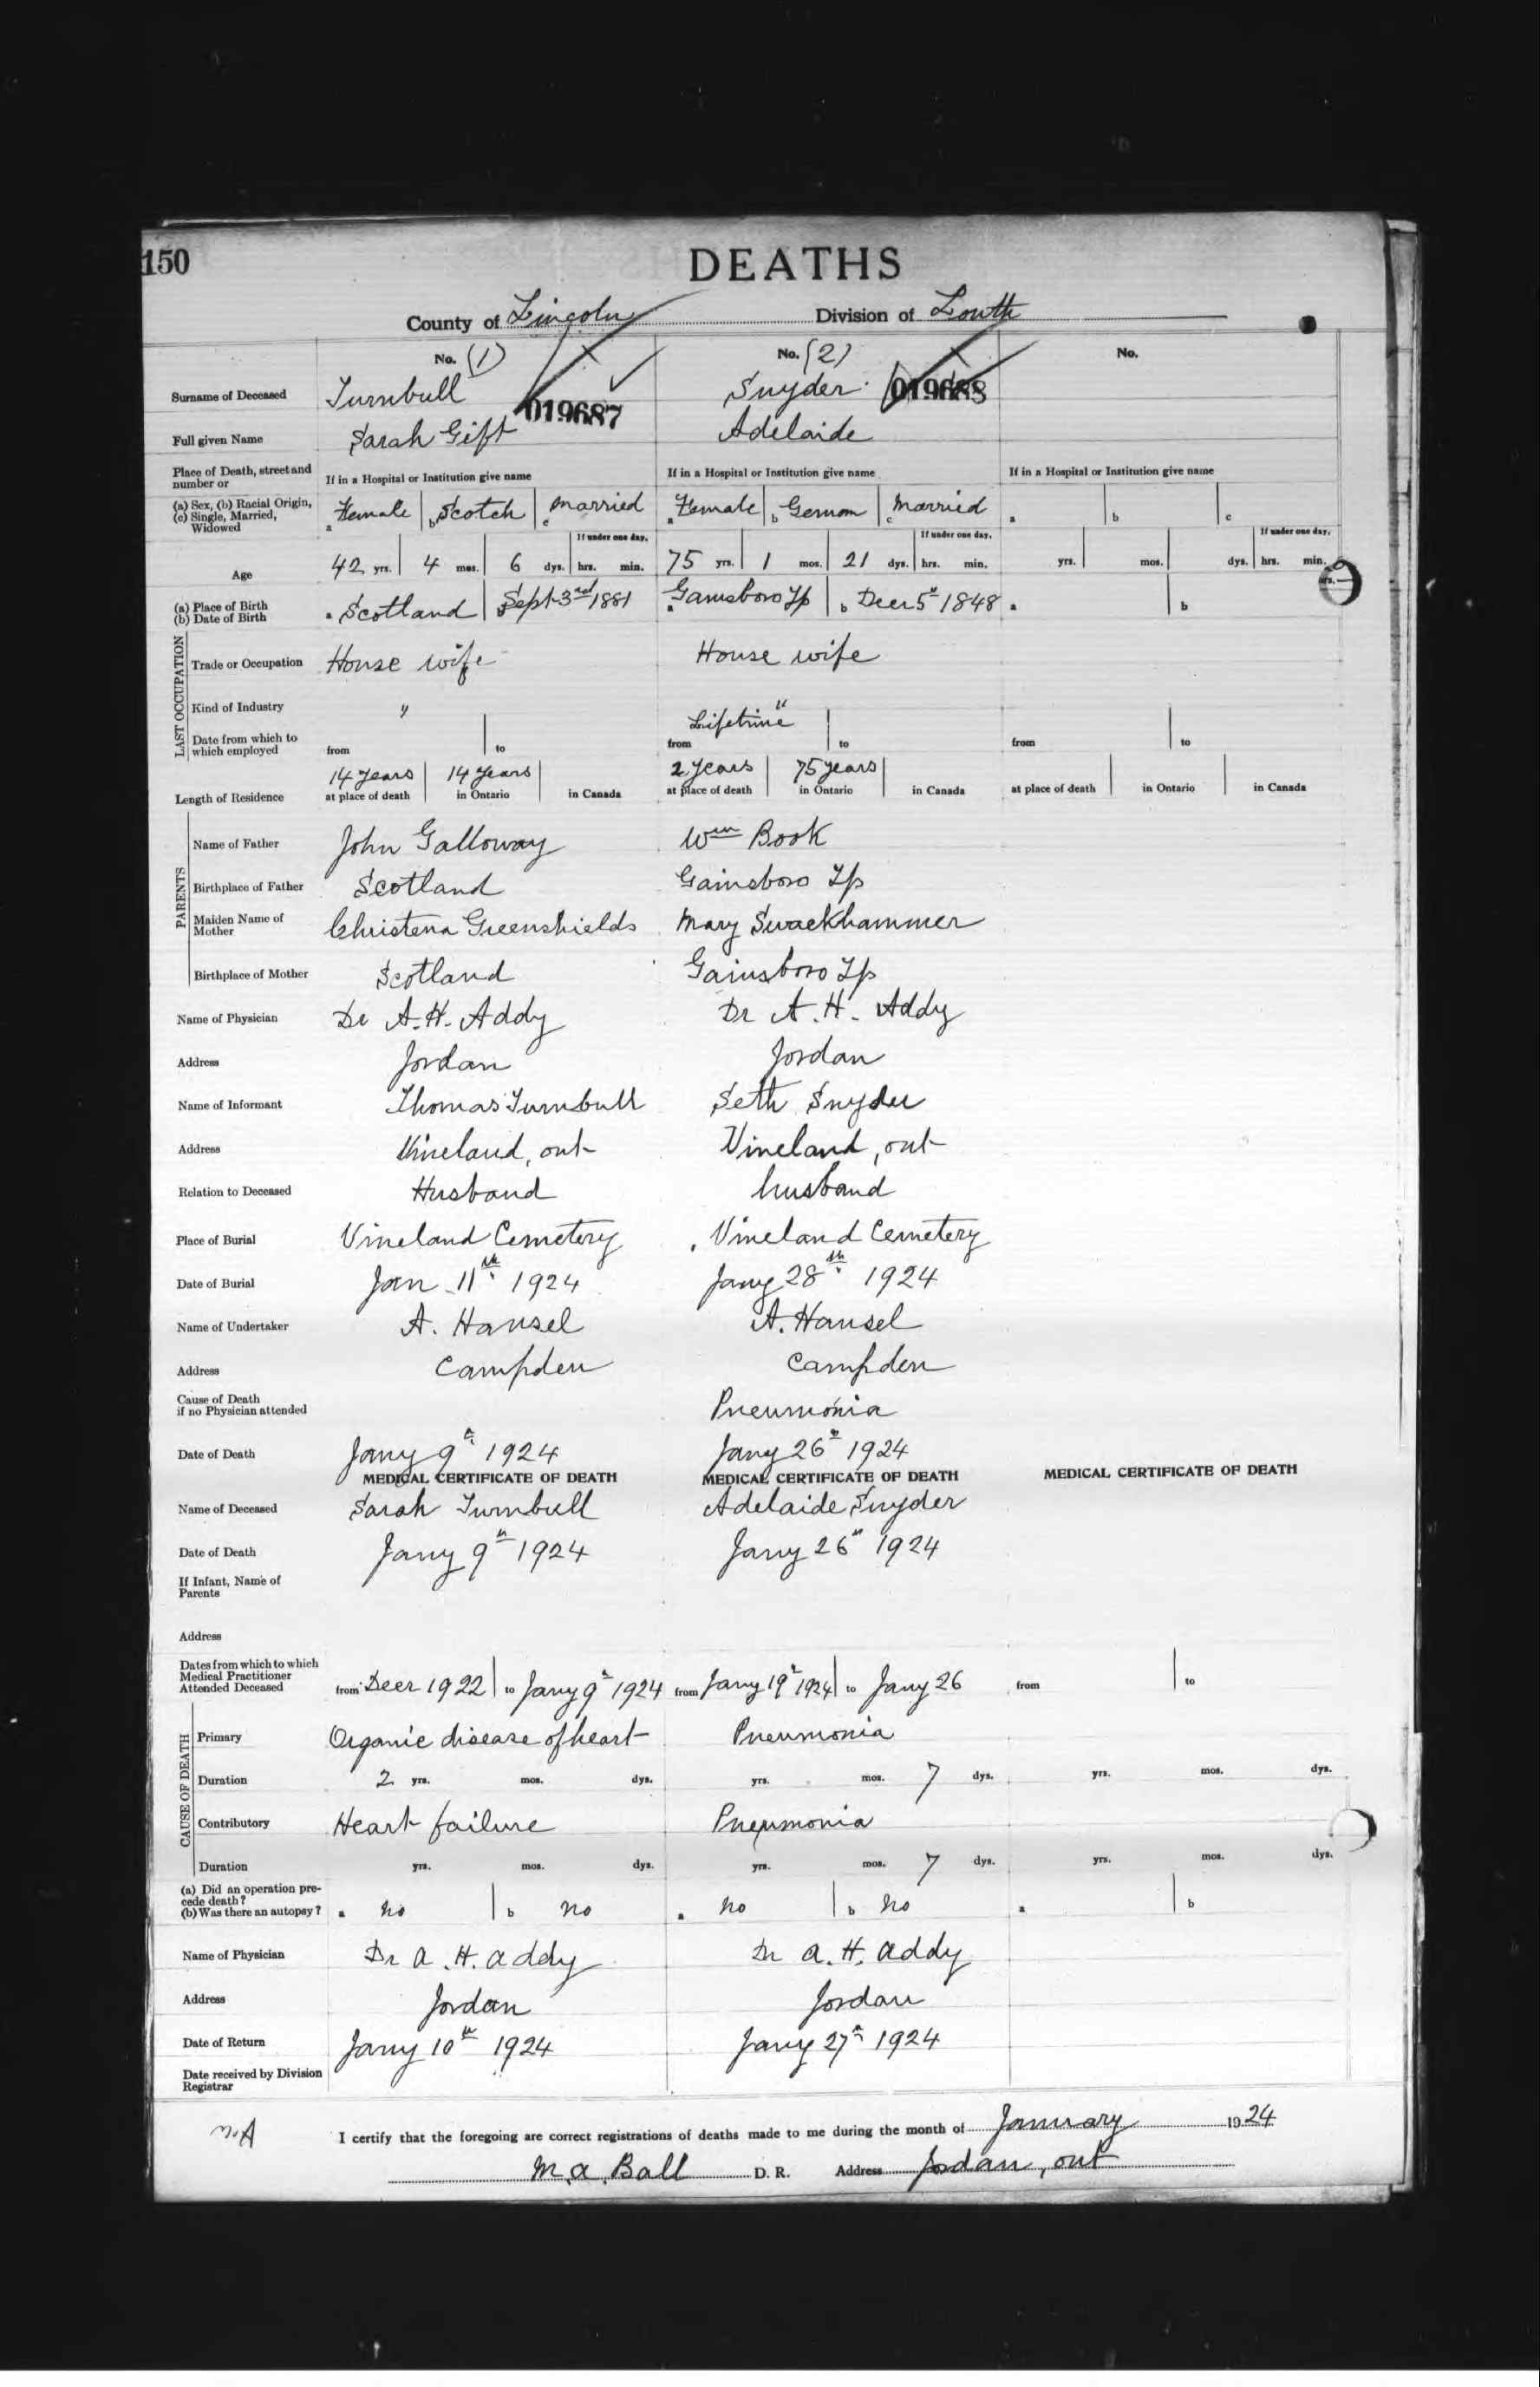 150
DEATHS
County of Lincoln Division of Louth
No. (1) No. (2) No.
Surname of Deceased Turnbull 019687 Snyder 019688
Full given Name Sarah Gift Adelaide
Place of Death, street and number or If in a Hospital or Institution give name If in a Hospital or Institution give name If in a Hospital or Institution give name
(a) Sex, (b) Racial Origin, (c) Single, Married, Widowed a Female b Scotch c Married a Female b German c Married a b c
If under one day. If under one day. If under one day.
Age 42 yrs. 4 mos. 6 dys. hrs. min. 75 yrs. 1 mos. 21 dys. hrs. min. yrs. mos. dys. hrs. min.
(a) Place of Birth (b) Date of Birth a Scotland b Sept 3rd 1881 a Gainsboro Tp b Decr 5th 1848 a b
LAST OCCUPATION
Trade or Occupation House wife House wife
Kind of Industry " "
Date from which to which employed from to Lifetime from to from to
Length of Residence 14 years at place of death 14 years in Ontario in Canada 2 years at place of death 75 years in Ontario in Canada at place of death in Ontario in Canada
PARENTS
Name of Father John Galloway Wm Book
Birthplace of Father Scotland Gainsboro Tp
Maiden Name of Mother Christena Greenshields Mary Swackhammer
Birthplace of Mother Scotland Gainsboro Tp
Name of Physician Dr A. H. Addy Dr A. H. Addy
Address Jordan Jordan
Name of Informant Thomas Turnbull Seth Snyder
Address Vineland, ont Vineland, ont
Relation to Deceased Husband husband
Place of Burial Vineland Cemetery Vineland Cemetery
Date of Burial Jan 11th 1924 Jany 28th 1924
Name of Undertaker A. Hansel A. Hansel
Address Campden Campden
Cause of Death if no Physician attended Pneumonia
Date of Death Jany 9th 1924 Jany 26th 1924
MEDICAL CERTIFICATE OF DEATH MEDICAL CERTIFICATE OF DEATH MEDICAL CERTIFICATE OF DEATH
Name of Deceased Sarah Turnbull Adelaide Snyder
Date of Death Jany 9th 1924 Jany 26th 1924
If Infant, Name of Parents
Address
Dates from which to which Medical Practitioner Attended Deceased from Decr 1922 to Jany 9th 1924 from Jany 19th 1924 to Jany 26 from to
CAUSE OF DEATH
Primary Organic disease of heart Pneumonia
Duration 2 yrs. mos. dys. yrs. mos. 7 dys. yrs. mos. dys.
Contributory Heart failure Pneumonia
Duration yrs. mos. dys. yrs. mos. 7 dys. yrs. mos. dys.
(a) Did an operation precede death? (b) Was there an autopsy? a no b no a no b no a b
Name of Physician Dr A. H. Addy Dr A. H. Addy
Address Jordan Jordan
Date of Return Jany 10th 1924 Jany 27th 1924
Date received by Division Registrar
I certify that the foregoing are correct registrations of deaths made to me during the month of January 1924
M. A. Ball D. R. Address Jordan, ont